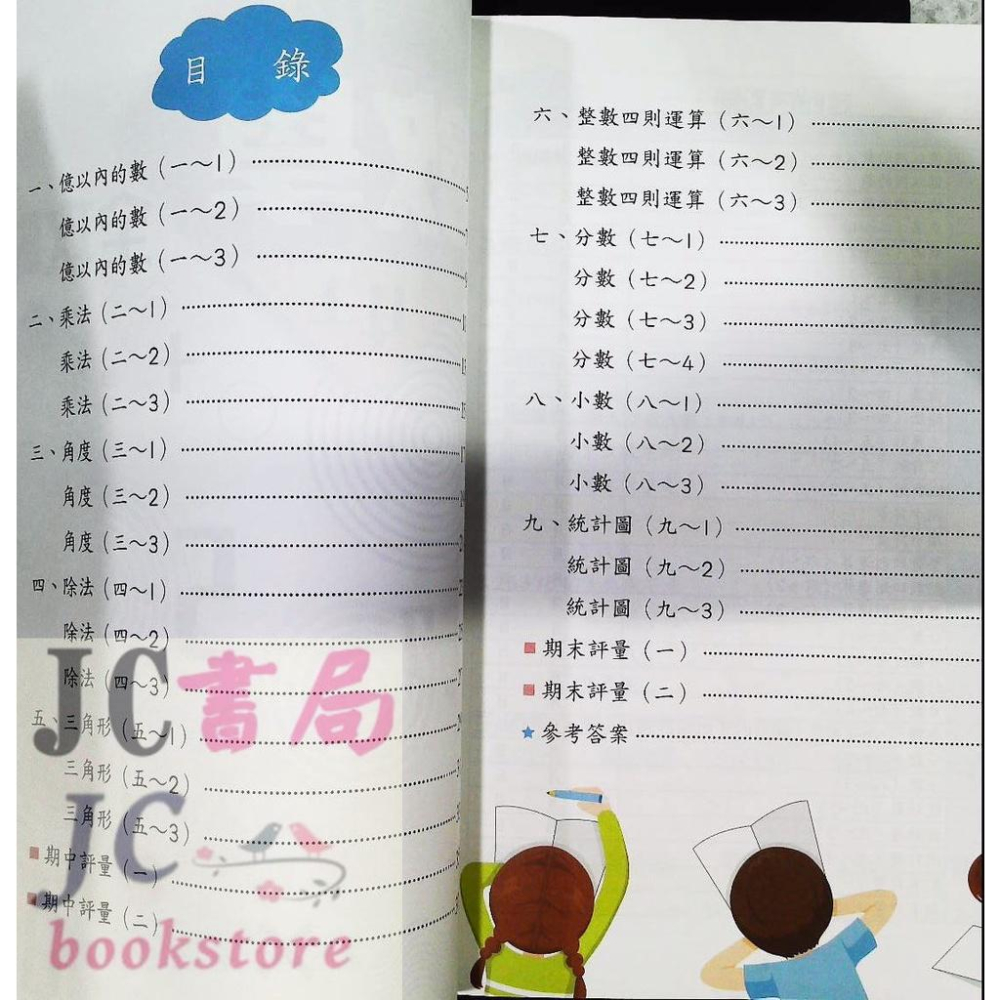 目 錄
一、億以內的數（一～1）
億以內的數（一～2）
億以內的數（一～3）
二、乘法（二～1）
乘法（二～2）
乘法（二～3）
三、角度（三～1）
角度（三～2）
角度（三～3）
四、除法（四～1）
除法（四～2）
除法（四～3）
五、三角形（五～1）
三角形（五～2）
三角形（五～3）
期中評量（一）
期中評量（二）
六、整數四則運算（六～1）
整數四則運算（六～2）
整數四則運算（六～3）
七、分數（七～1）
分數（七～2）
分數（七～3）
分數（七～4）
八、小數（八～1）
小數（八～2）
小數（八～3）
九、統計圖（九～1）
統計圖（九～2）
統計圖（九～3）
期末評量（一）
期末評量（二）
參考答案
JC書局
JC
bookstore